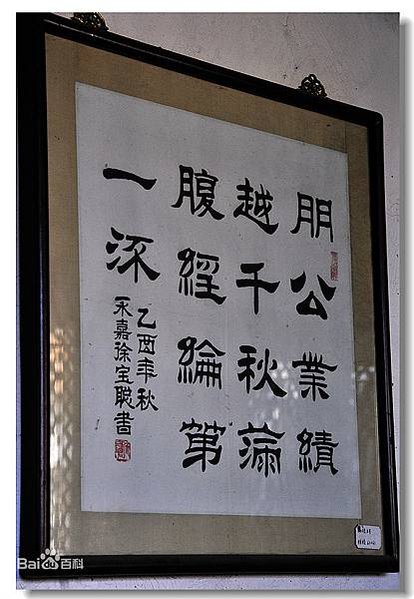 朋公業績
越千秋滿
腹經綸第
一流
乙酉年秋
永嘉徐宝聪書
Bai百科